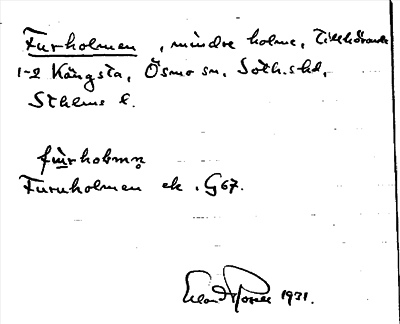 Furholmen, mindre holme, tillhörande
1-2 Kängsta, Ösmo sn. Soth. shd,
Sthlms l.
fu̇rholmn̥
Furuholmen ek. G67.
1931.